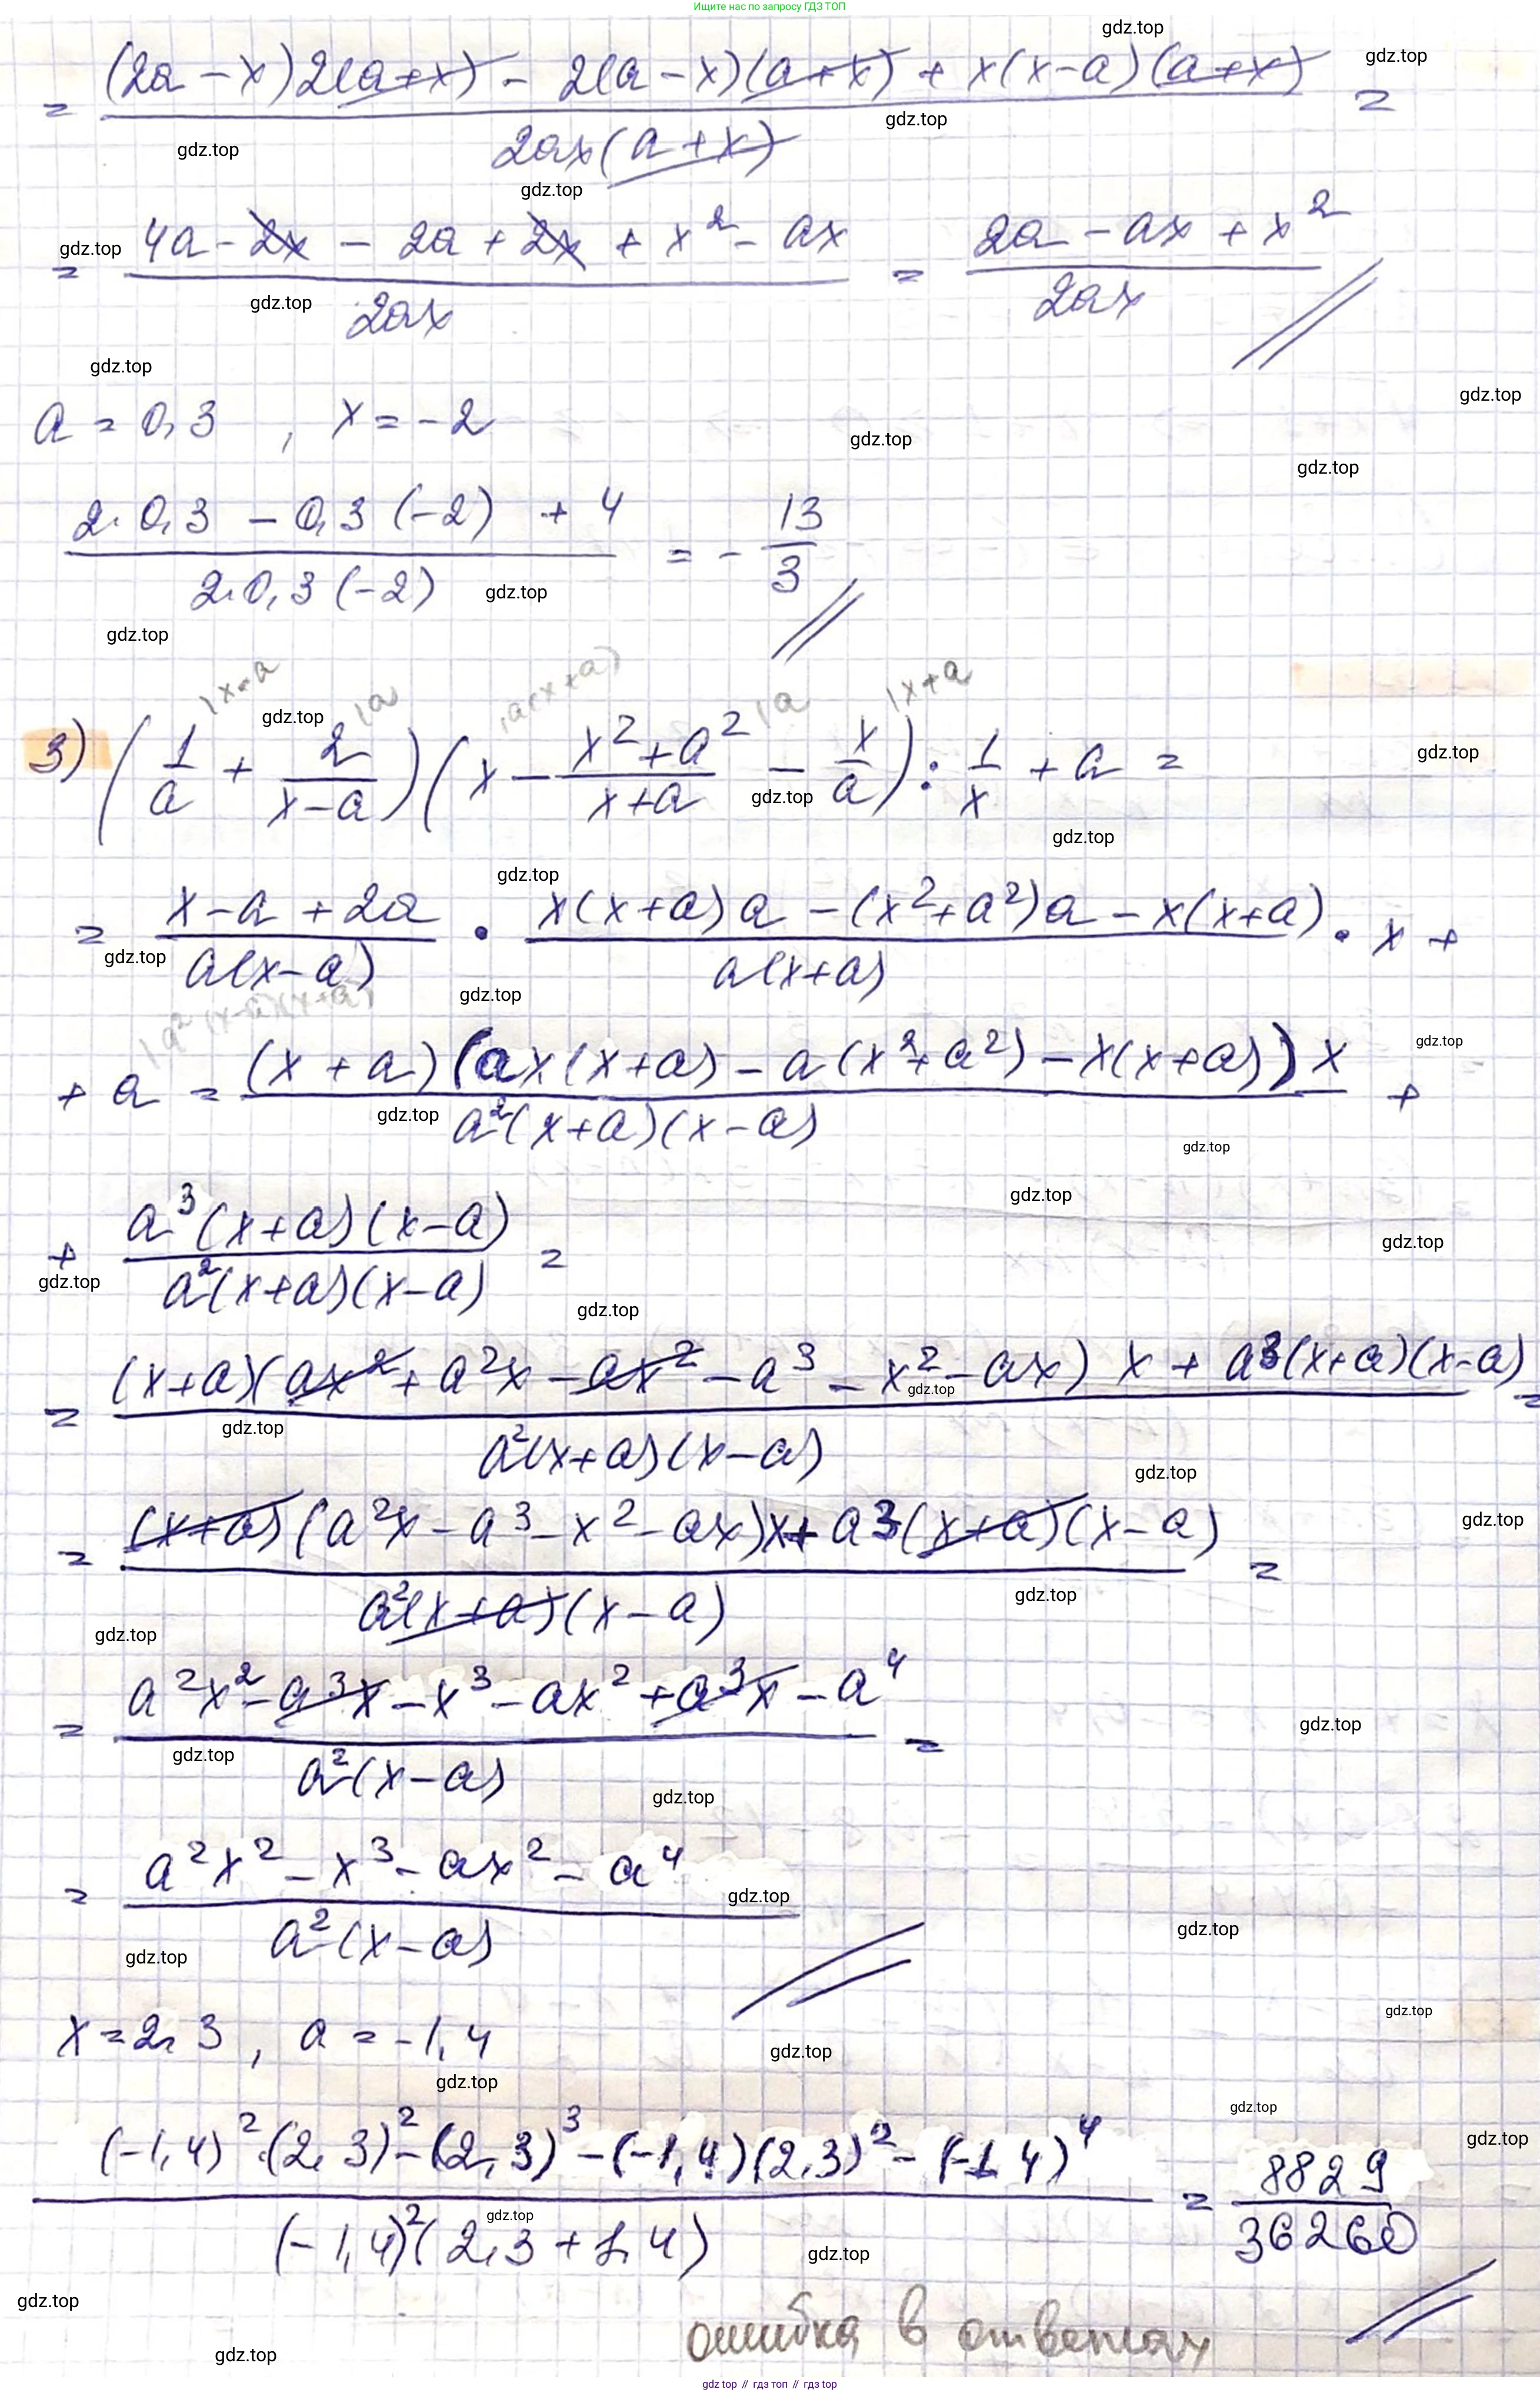 Ищите нас по запросу ГДЗ ТОП
= ((2a - x)2(a+x) - 2(a - x)(a+x) + x(x-a)(a+x)) / (2ax(a+x)) =
= (4a - 2x - 2a + 2x + x² - ax) / (2ax) = (2a - ax + x²) / (2ax)
a = 0,3 , x = -2
(2·0,3 - 0,3(-2) + 4) / (2·0,3(-2)) = - 13/3
3) (1/a + 2/(x-a))(x - (x²+a²)/(x+a) - x/a) : 1/x + a =
= (x-a+2a)/(a(x-a)) · (x(x+a)a - (x²+a²)a - x(x+a))/(a(x+a)) · x +
+ a = ((x+a)(ax(x+a) - a(x²+a²) - x(x+a))x) / (a²(x+a)(x-a)) +
+ (a³(x+a)(x-a)) / (a²(x+a)(x-a)) =
= ((x+a)(ax² + a²x - ax² - a³ - x² - ax) x + a³(x+a)(x-a)) / (a²(x+a)(x-a)) =
= ((x+a)(a²x - a³ - x² - ax)x + a³(x+a)(x-a)) / (a²(x+a)(x-a)) =
= (a²x² - a³x - x³ - ax² + a³x - a⁴) / (a²(x-a)) =
= (a²x² - x³ - ax² - a⁴) / (a²(x-a))
x = 2,3 , a = -1,4
((-1,4)²·(2,3)² - (2,3)³ - (-1,4)(2,3)² - (-1,4)⁴) / ((-1,4)²(2,3+1,4)) = 8829/36260
ошибка в ответах
gdz.top // гдз топ // gdz.top